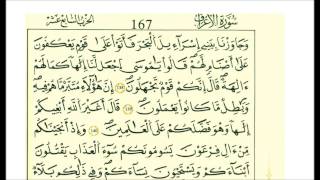 سُورَةُ الأَعْرَافِ 167 الحِزْبُ السَّابِعَ عَشَرَ
وَجَاوَزْنَا بِبَنِي إِسْرَاءِيلَ الْبَحْرَ فَأَتَوْا عَلَى قَوْمٍ يَعْكُفُونَ
عَلَى أَصْنَامٍ لَّهُمْ قَالُوا يَامُوسَى اجْعَل لَّنَا إِلَاهًا كَمَا لَهُمْ
ءَالِهَةٌ قَالَ إِنَّكُمْ قَوْمٌ تَجْهَلُونَ إِنَّ هَؤُلَاءِ مُتَبَّرٌ مَّا هُمْ فِيهِ
وَبَاطِلٌ مَّا كَانُوا يَعْمَلُونَ قَالَ أَغَيْرَ اللَّهِ أَبْغِيكُمْ
إِلَاهًا وَهُوَ فَضَّلَكُمْ عَلَى الْعَالَمِينَ وَإِذْ أَنجَيْنَاكُم
مِّنْ ءَالِ فِرْعَوْنَ يَسُومُونَكُمْ سُوءَ الْعَذَابِ يَقْتُلُونَ
أَبْنَاءَكُمْ وَيَسْتَحْيُونَ نِسَاءَكُمْ وَفِي ذَالِكُم بَلَاءٌ